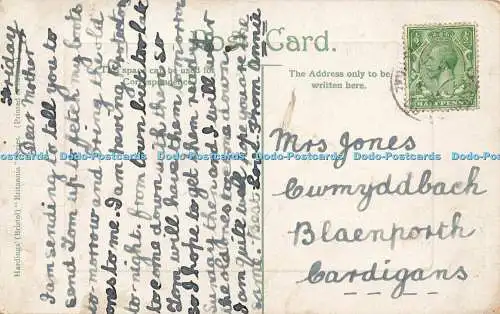 Post Card.
The space can be used for
Correspondence.
The Address only to be
written here.
HALFPENNY
Hardings' (Bristol) "Britannia" Series. (Printed
Friday
Dear Mother
I am sending to tell you to
send Tom up to fetch my boots
to morrow and bring the old
ones to me. I am having
to-night. from London be too late
to come down with them so
Tom will have them
so I hope to get them ready
Sunday the road I will
she likes to come down
I am quite well hope you are the
same. Best Love from Annie
Mrs Jones
Cwmyddbach
Blaenporth
Cardigans
Dodo-Postcards Dodo-Postcards Dodo-Postcards Dodo-Postcards Dodo-Postcards